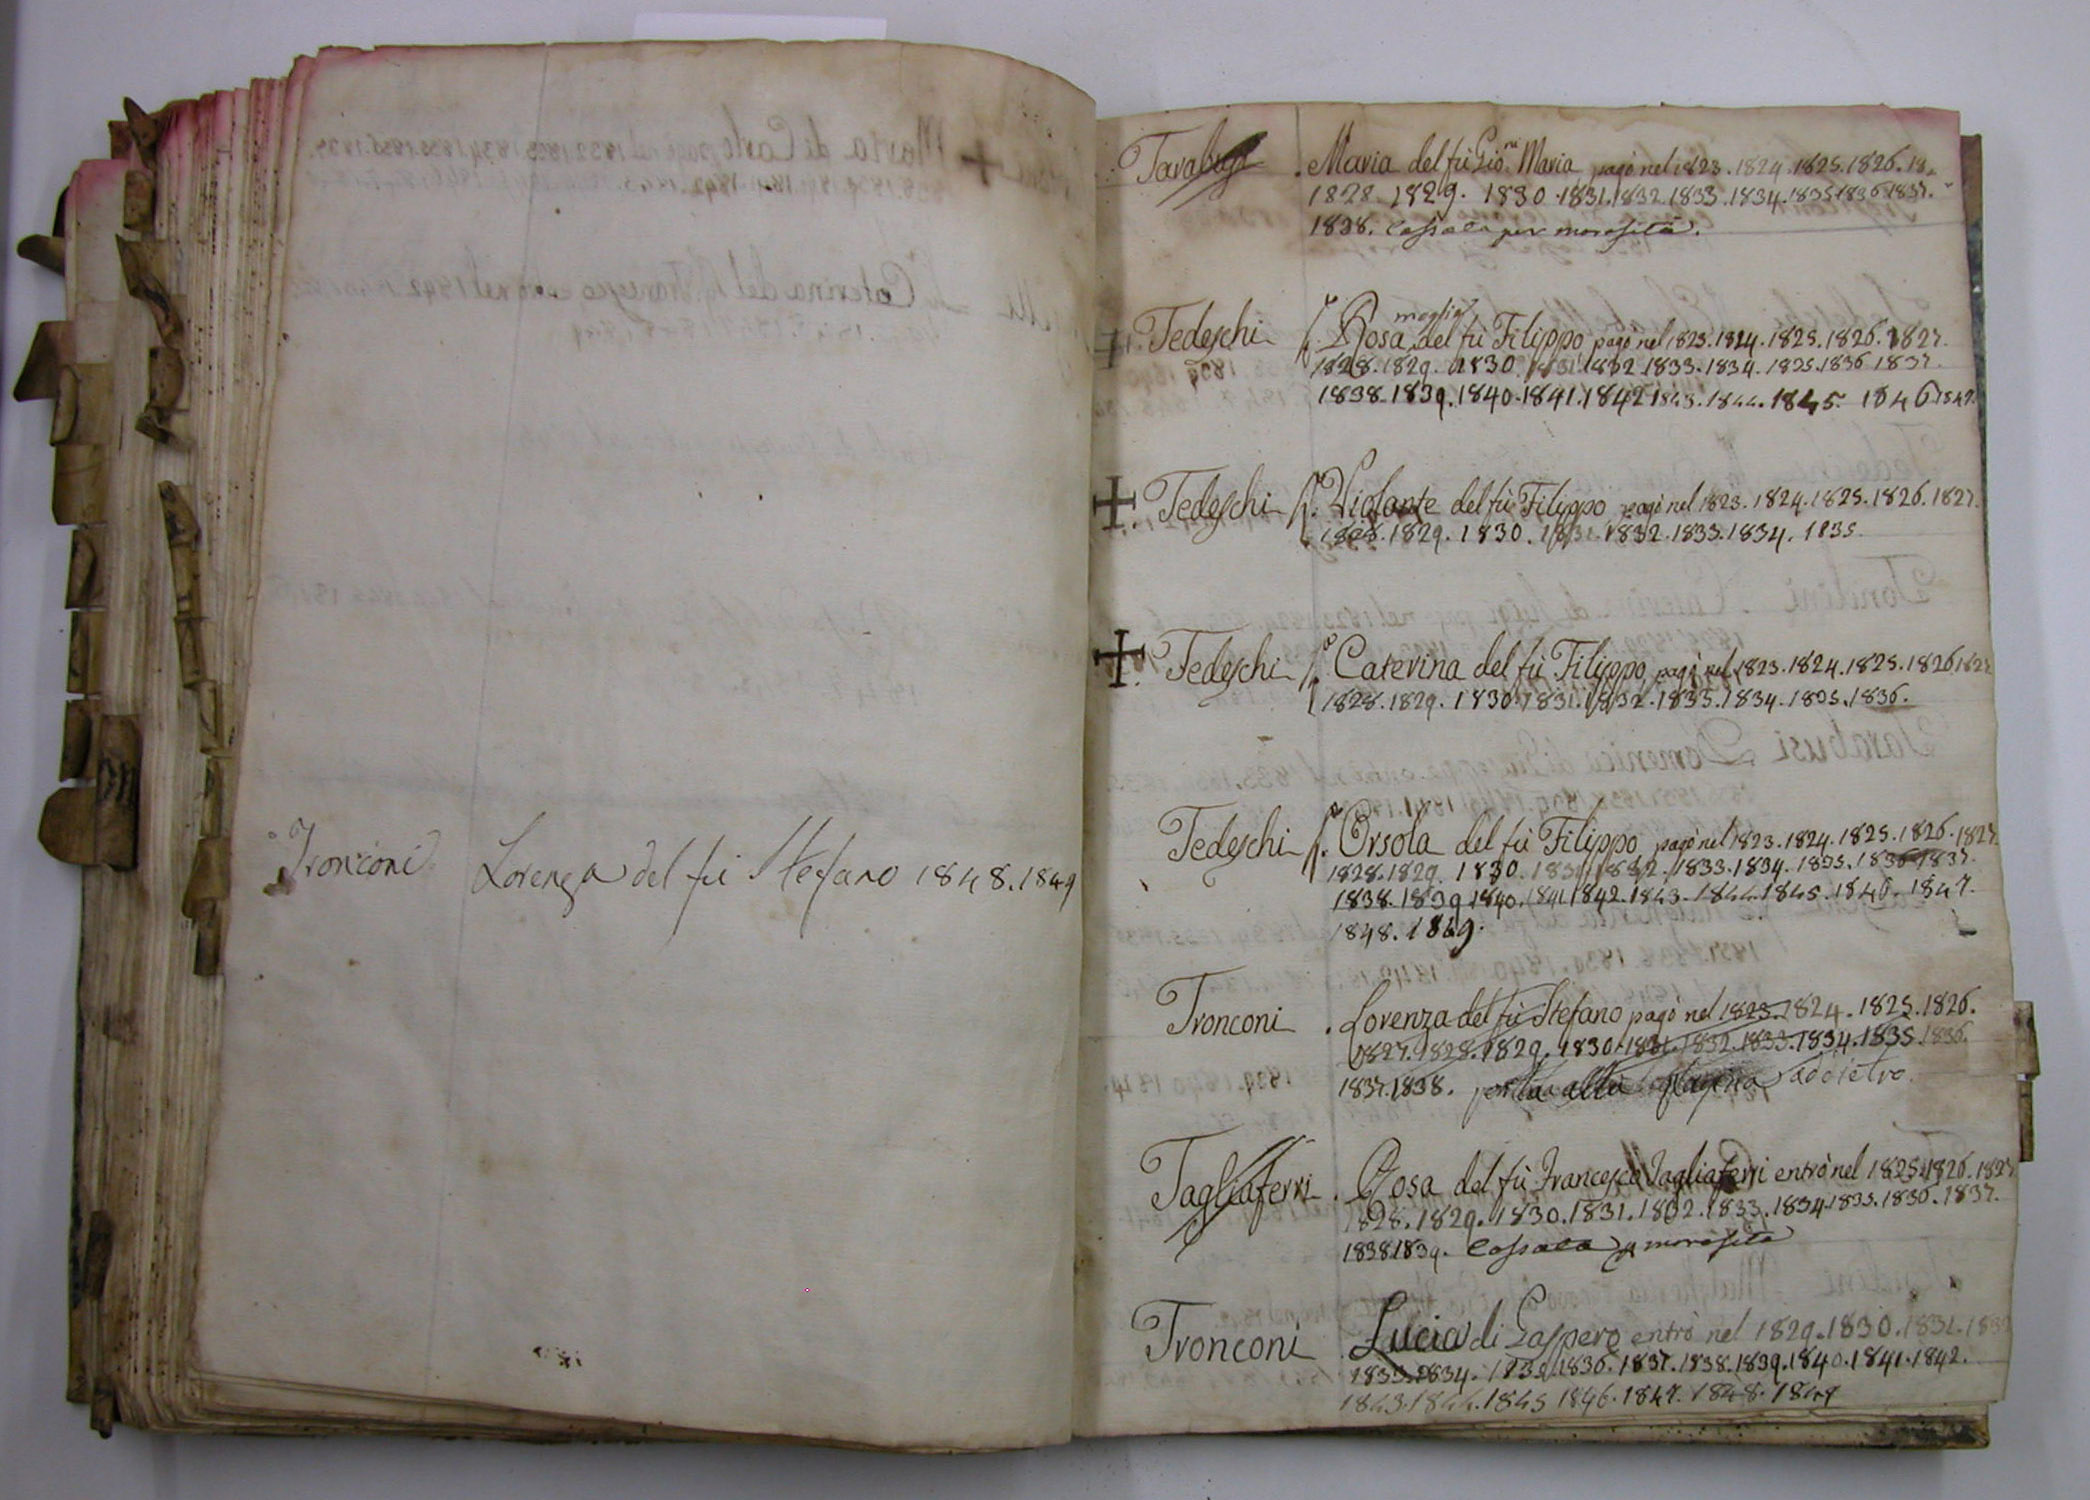 Tronconi Lorenza del fu Stefano 1848.1849
Maria del fù Gio.ni Maria pagò nel 1823.1824.1825.1826.18
1828.1829.1830.1831.1832.1833.1834.1835.1836.1837.
1838. Cassata per morosità.
Tedeschi Rosa moglie del fù Filippo pagò nel 1823.1824.1825.1826.1827.
1828.1829.1830.1831.1832.1833.1834.1835.1836.1837.
1838.1839.1840.1841.1842.1843.1844.1845.1846.1847.
Tedeschi Violante del fù Filippo pagò nel 1823.1824.1825.1826.1827.
1828.1829.1830.1831.1832.1833.1834.1835.
Tedeschi Caterina del fù Filippo pagò nel 1823.1824.1825.1826.1827
1828.1829.1830.1831.1832.1833.1834.1835.1836.
Tedeschi Orsola del fù Filippo pagò nel 1823.1824.1825.1826.1827.
1828.1829.1830.1831.1832.1833.1834.1835.1836.1837.
1838.1839.1840.1841.1842.1843.1844.1845.1846.1847.
1848.1849.
Tronconi Lorenza del fù Stefano pagò nel 1823.1824.1825.1826.
1827.1828.1829.1830.1831.1832.1833.1834.1835.1836.
1837.1838. addietro.
Tagliaferri Rosa del fù Francesco Tagliaferri entrò nel 1825.1826.1827
1828.1829.1830.1831.1832.1833.1834.1835.1836.1837.
1838.1839. Cassata p morosità
Tronconi Lucia di Gaspero entrò nel 1829.1830.1831.1832
1833.1834.1835.1836.1837.1838.1839.1840.1841.1842.
1843.1844.1845.1846.1847.1848.1849